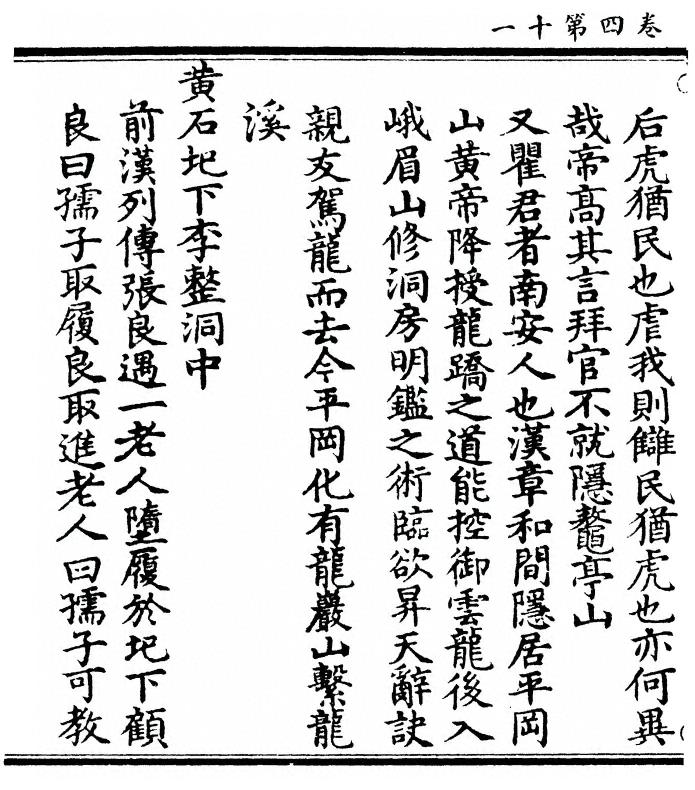 卷四第十一
后虎猶民也虐我則讎民猶虎也亦何異
哉帝高其言拜官不就隱鼇亭山
又瞿君者南安人也漢章和間隱居平岡
山黃帝降授龍蹻之道能控御雲龍後入
峨眉山修洞房明鑑之術臨欲昇天辭訣
親友駕龍而去今平岡化有龍巖山繫龍
溪
黃石圯下李整洞中
前漢列傳張良遇一老人墮履於圯下顧
良曰孺子取履良取進老人曰孺子可教